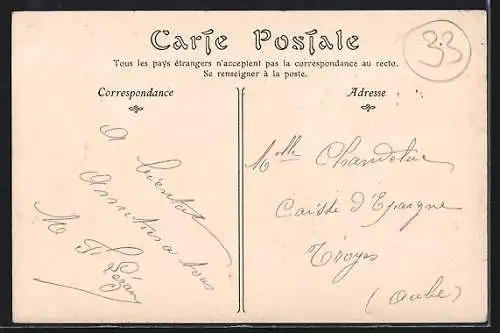 Carte Postale
33
Tous les pays étrangers n'acceptent pas la correspondance au recto.
Se renseigner à la poste.
Correspondance
A bientot
à vous
M
Adresse
Melle
Caisse d'Epargne
Troyes
(Aube)